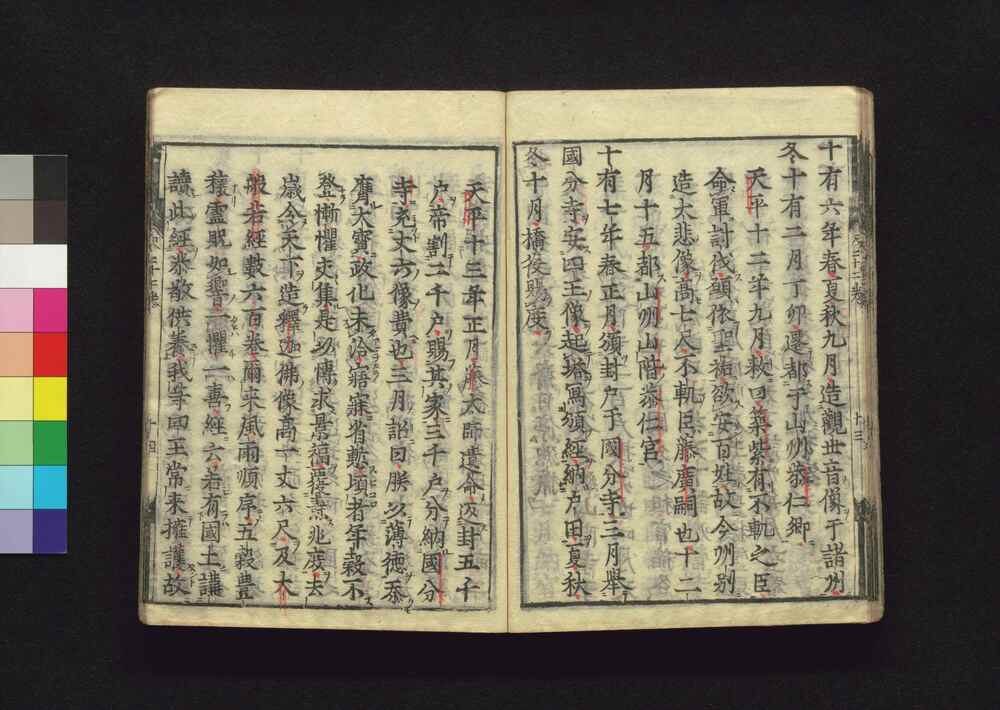 十有六年春夏秋九月造觀世音像于諸州
冬十有二月丁卯遷都于山州恭仁郷
天平十二年九月敕曰築紫有不軌之臣
命軍討伐願依聖祐欲安百姓故今州別
造大悲像高七尺不軌臣藤廣嗣也十二
月十五都山州山階恭仁宮
十有七年春正月須封戸于國分寺三月擧
國分寺安四王像起塔寫須經納戸田夏秋
冬十月橘後賜度
天平十三年正月藤太師遺命返封五千
戸帝割二千戸賜其家三千戸分納國分
寺充丈六像費也三月詔曰朕以薄德忝
膺大寶政化未洽寤寐省慙頃者年穀不
登慚懼交集是以博求景福
兆度去
歳令天下造釋迦佛像高一丈六尺及大
般若經數六百卷爾来風雨順序五穀豊
穰靈貺如響一懼一喜經云若有國土講
讀此經恭敬供養我等四王常来擁護故
十三
十四